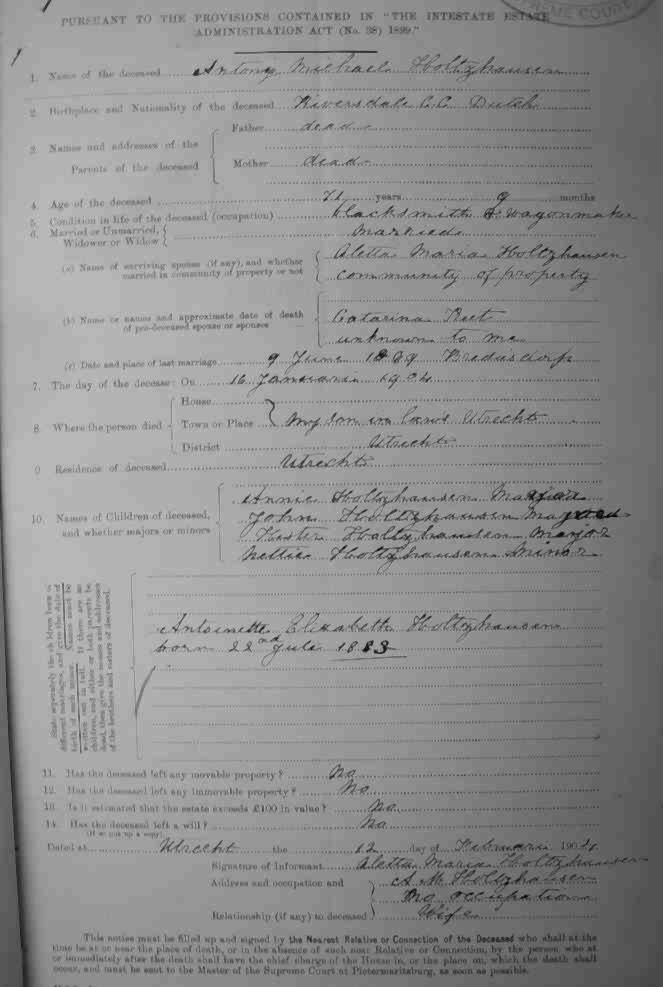 PREME COURT
PURSUANT TO THE PROVISIONS CONTAINED IN "THE INTESTATE ESTATE
ADMINISTRATION ACT (No. 38) 1899."
1
1. Name of the deceased Antony Michael Holtzhausen
2. Birthplace and Nationality of the deceased Riversdale C.C. Dutch
3. Names and addresses of the Parents of the deceased
Father dead
Mother dead
4. Age of the deceased 71 years 9 months
5. Condition in life of the deceased (occupation) blacksmith & wagonmaker
6. Married or Unmarried, Widower or Widow married
(a) Name of surviving spouse (if any), and whether married in community of property or not
Aletta Maria Holtzhausen
community of property
(b) Name or names and approximate date of death of pre-deceased spouse or spouses
Catarina
unknown to me
(c) Date and place of last marriage 9 June 1869 Bredasdorp
7. The day of the decease: On 16 Januari 1904
8 Where the person died
House
Town or Place My Son in laws Utrecht
District Utrecht
9 Residence of deceased Utrecht
10. Names of Children of deceased, and whether majors or minors
Annie Holtzhausen
John Holtzhausen
Holtzhausen Marjor
Nettie Holtzhausen Minor
State separately the children born of different marriages, and give the date of birth of each minor. Names must be written out in full. If there are no children, and either or both parents be dead, then give the names and addresses of the brothers and sisters of deceased.
Antoinette Elizabeth Holtzhausen
born 22nd Juli 1883
11. Has the deceased left any movable property? No
12. Has the deceased left any immovable property? No
13. Is it estimated that the estate exceeds £100 in value? No
14. Has the deceased left a will? No
(If so put up a copy)
Dated at Utrecht the 12 day of Februari 1904
Signature of Informant Aletta Maria Holtzhausen
Address and occupation and A M Holtzhausen
no occupation
Relationship (if any) to deceased Wife
This notice must be filled up and signed by the Nearest Relative or Connection of the Deceased who shall at the
time be at or near the place of death, or in the absence of such near Relative or Connection, by the person, who at
or immediately after the death shall have the chief charge of the House in, or the place on, which the death shall
occur, and must be sent to the Master of the Supreme Court at Pietermaritzburg, as soon as possible.